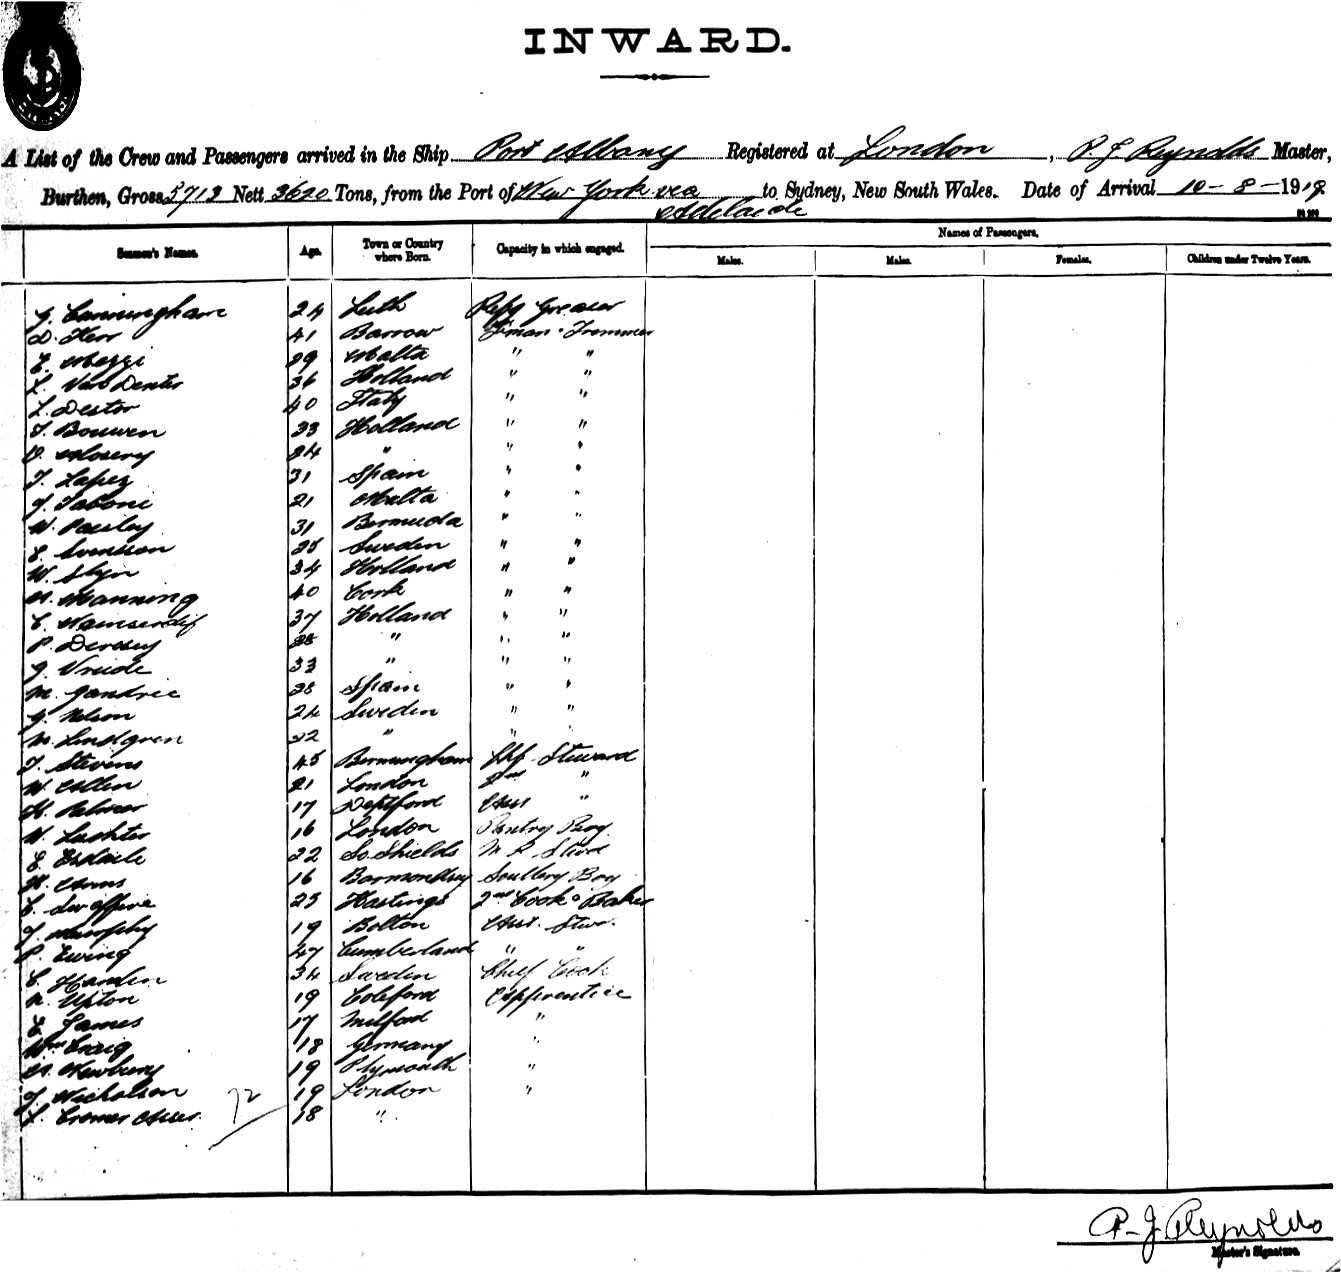 INWARD.
A List of the Crew and Passengers arrived in the Ship Port Albany Registered at London, P. J. Reynolds Master,
Burthen, Gross 5713 Nett 3620 Tons, from the Port of New York via Adelaide to Sydney, New South Wales. Date of Arrival 10-8-1918
Names of Passengers.
Seamen's Names. Age. Town or Country where Born. Capacity in which engaged. Males. Males. Females. Children under Twelve Years.
J. Cunningham 24 Leith Refg Greaser
D. Kerr 41 Barrow F'man & Trimmer
E. 29 Malta " "
L. Van Denter 36 Holland " "
L. Destor 40 Italy " "
T. Bouwen 33 Holland " "
24 " " "
T. Lapez 31 Spain " "
J. Tabone 21 Malta " "
W. Paisley 31 Bermuda " "
E. Svensson 25 Sweden " "
W. Slyn 34 Holland " "
Manning 40 Cork " "
C. 37 Holland " "
P. 28 " " "
J. Vriede 33 " " "
M. 28 Spain " "
J. Nelson 24 Sweden " "
M. Lindgren 22 " " "
T. Stevens 45 Birmingham Chf Steward
W. Allen 21 London 2nd "
H. Palmer 17 Deptford Asst "
W. 16 London Pantry Boy
E. Esdaile 22 So. Shields M. R. Stwd
H. 16 Bormondsey Scullery Boy
C. Swaffine 25 Hastings 2nd Cook & Baker
J. Murphy 19 Bolton Asst. Stwd.
P. Ewing 47 Cumberland " "
C. 34 Sweden Chief Cook
Upton 19 Coleford Apprentice
E. James 17 Milford "
Wm Craig 18 Germany "
Newbury 19 Plymouth "
J. Nicholson 19 London "
L. Cremer 18 "
72
P. J. Reynolds
Master's Signature.